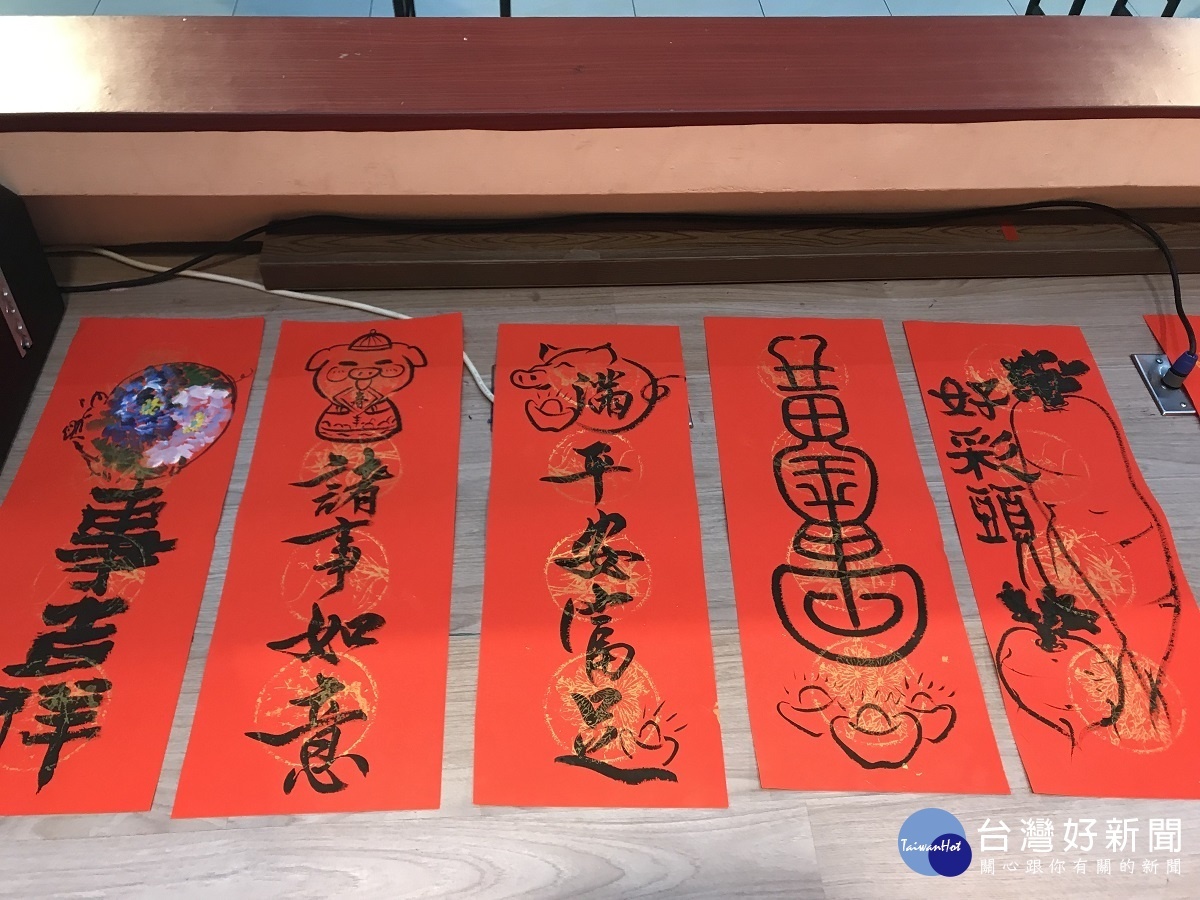 事吉祥
諸事如意
滿
平安富足
好彩頭
TaiwanHot
台灣好新聞
關心跟你有關的新聞